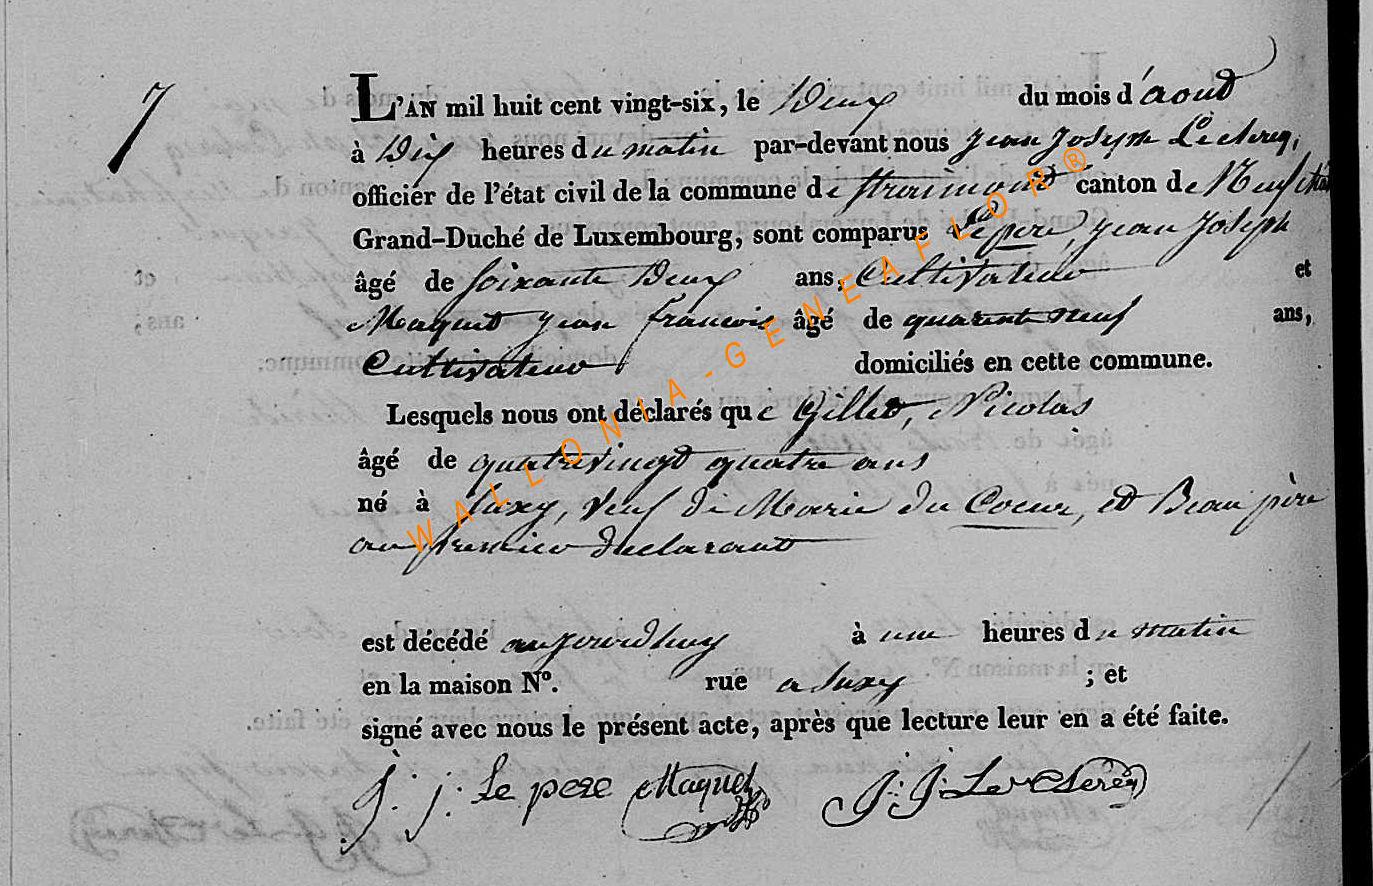 7
L'AN mil huit cent vingt-six, le Deux du mois d'aout
à Dix heures du matin par-devant nous Jean Joseph Leclereq,
officiér de l'état civil de la commune de Straimont canton de Neufchat
Grand-Duché de Luxembourg, sont comparus Lepere, Jean Joseph
âgé de soixante Deux ans, Cultivateur et
Maquet Jean francois âgé de quarante neuf ans,
Cultivateur domiciliés en cette commune.
Lesquels nous ont déclarés que Gillet, Nicolas
âgé de quatrevingt quatre ans
né à Suxy, veuf de Marie du Coeur, et Beau père
au premier declarant
est décédé aujourdhuy à une heures du matin
en la maison Nº. rue a Suxy ; et
signé avec nous le présent acte, après que lecture leur en a été faite.
J. j. Le pere Maquet J. J. Leclereq
WALLONIA-GENEAFLOR®